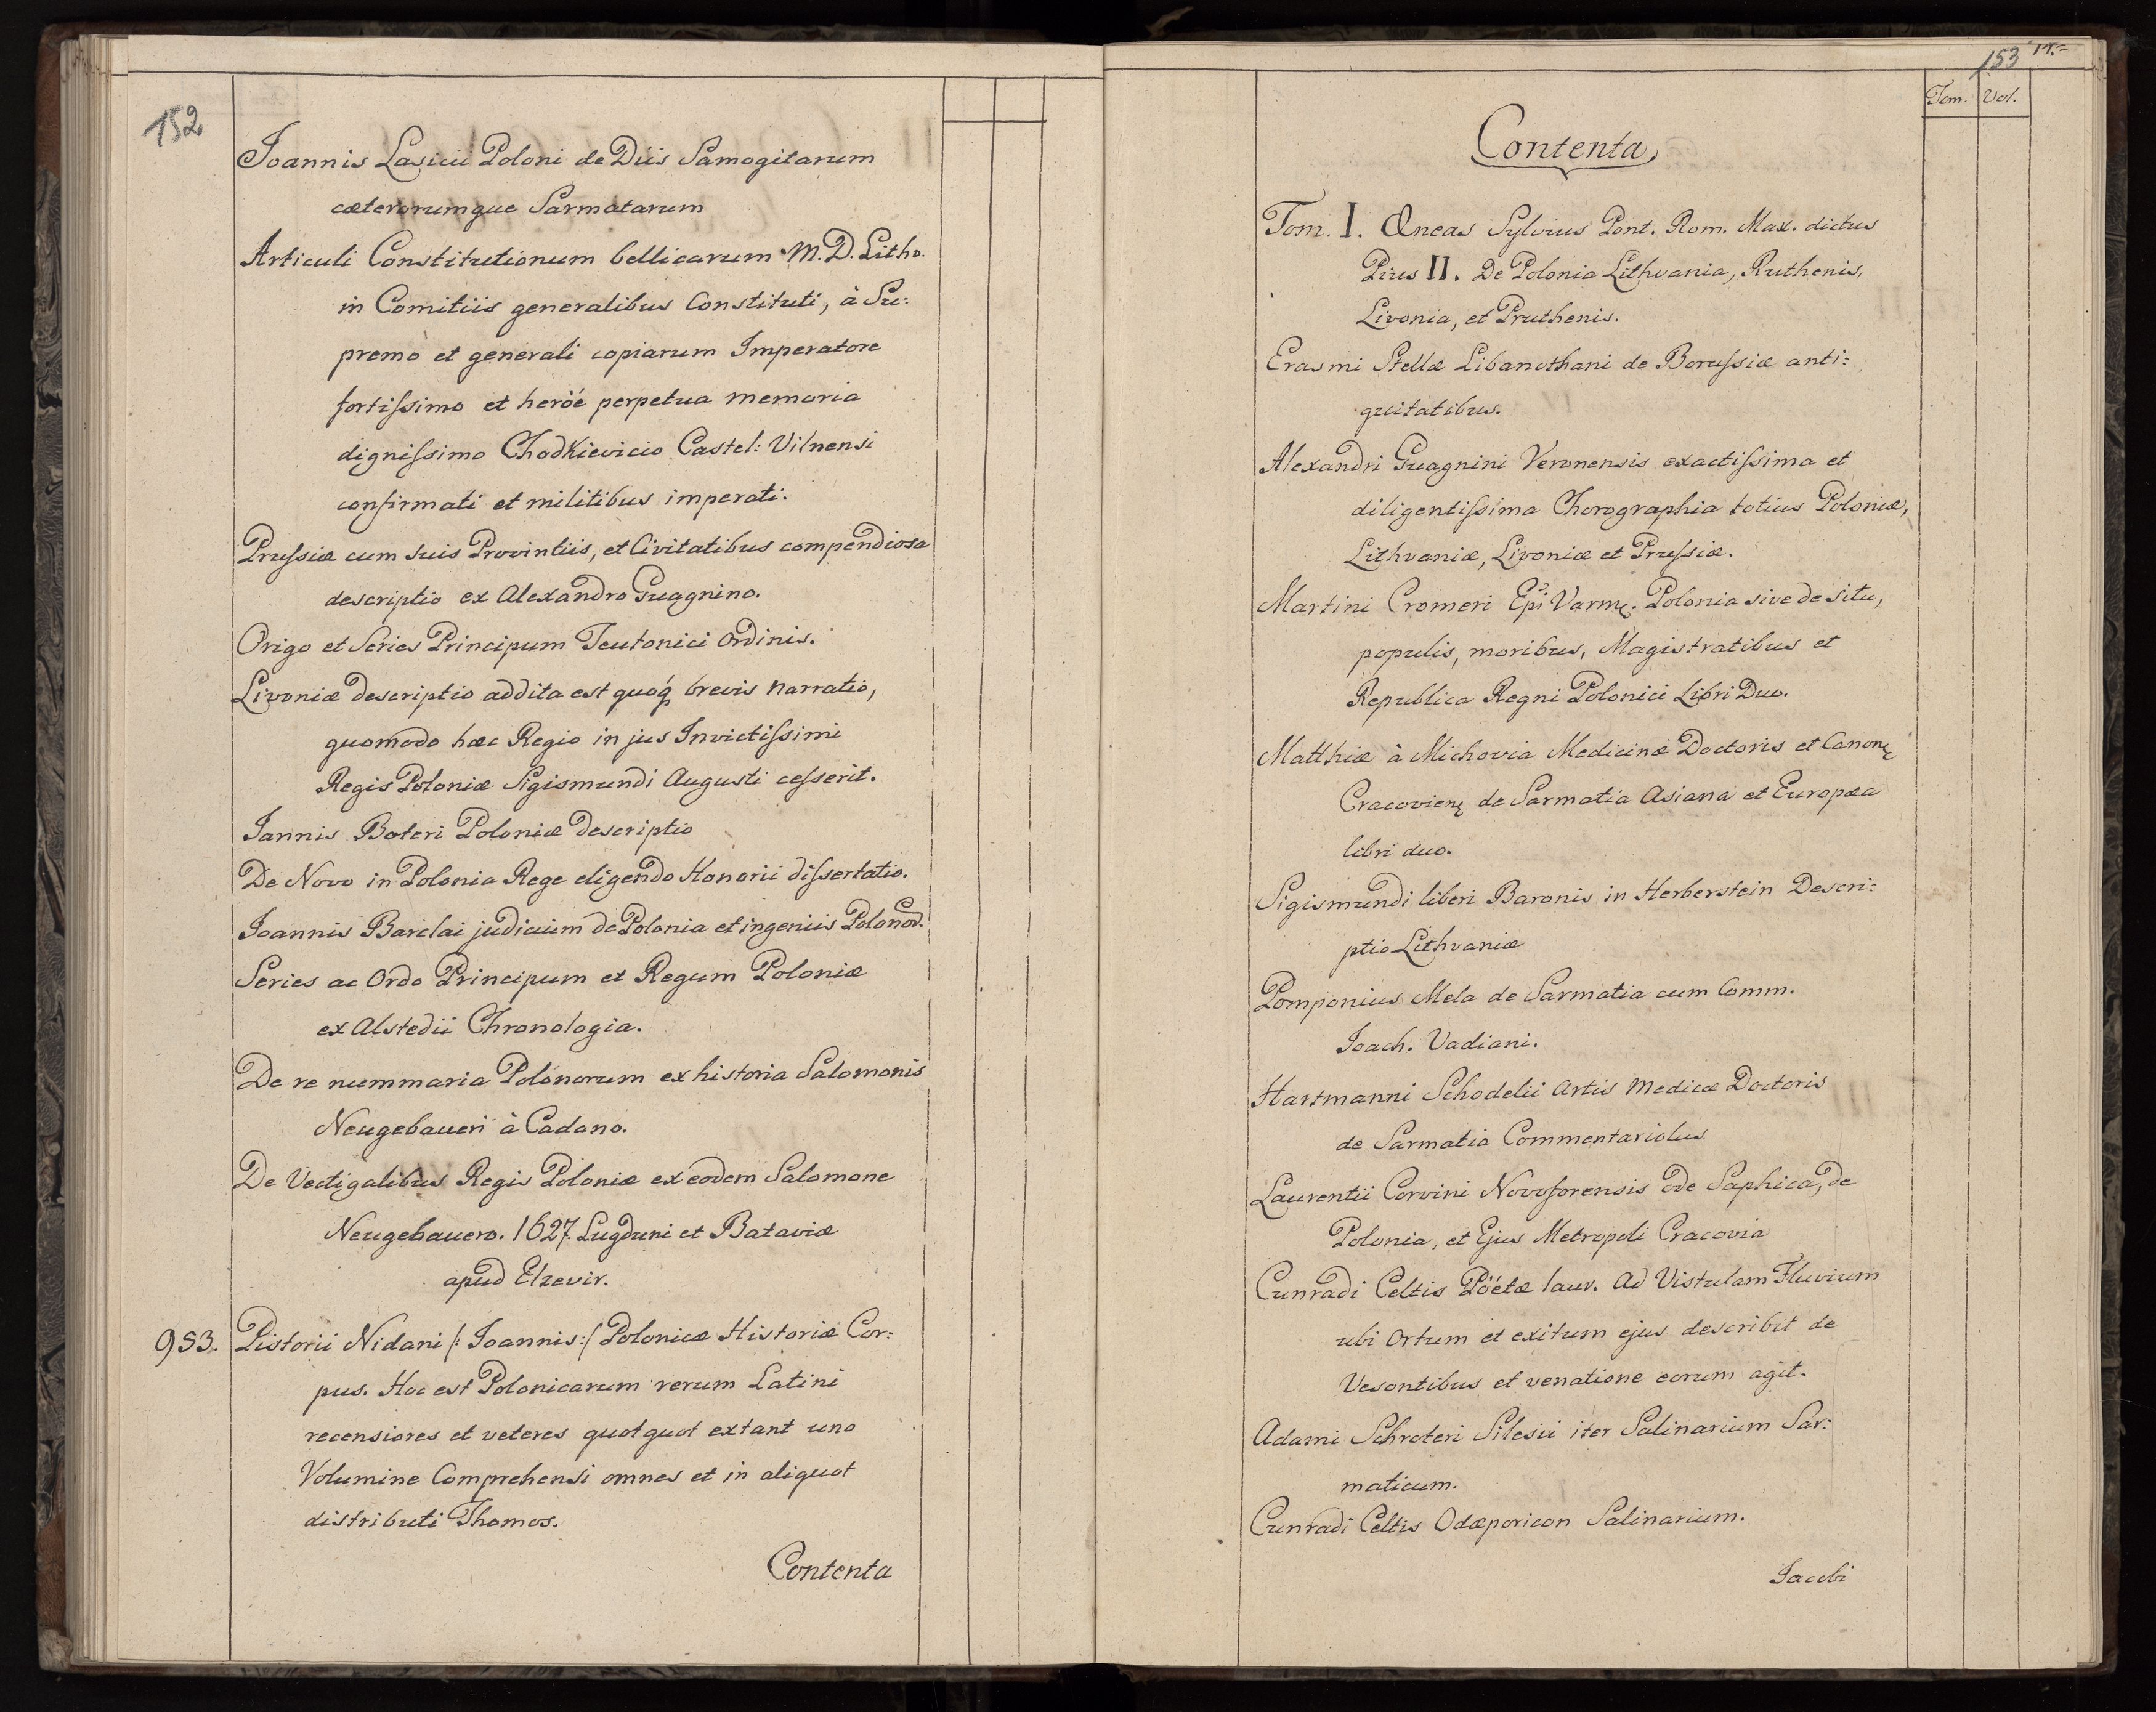 152
Joannis Lasicii Poloni de Diis Samogitarum
cæterorumque Sarmatarum
Articuli Constitutionum bellicarum M.D. Lithv.
in Comitiis generalibus Constituti, à Su:
premo et generali copiarum Imperatore
fortissimo et heröé perpetua memoria
dignissimo Chodkievicio Castel: Vilnensi
confirmati et militibus imperati.
Prussiæ cum suis Provintiis, et Civitatibus compendiosa
descriptio ex Alexandro Guagnino.
Origo et Series Principum Teutonici Ordinis.
Livoniæ descriptio addita est quoq brevis narratio,
quomodo hæc Regio in jus Invictissimi
Regis Poloniæ Sigismundi Augusti cesserit.
Jannis Boteri Poloniæ descriptio
De Novo in Polonia Rege eligendo Honorii dissertatio.
Joannis Barclai judicium de Polonia et ingeniis Polonor.
Series ac Ordo Principum et Regum Poloniæ
ex Alstedii Chronologia.
De re nummaria Polonorum ex historia Salomonis
Neugebaueri à Cadano.
De Vectigalibus Regis Poloniæ ex eodem Salomone
Neugebauero. 1627. Lugduni et Bataviæ
apud Elzevir.
953. Pistorii Nidani /: Joannis :/ Polonicæ Historiæ Cor:
pus. Hoc est Polonicarum rerum Latini
recensiores et veteres quotquot extant uno
Volumine Comprehensi omnes et in aliquot
distributi Thomos.
Contenta
153
Tom. Vol.
Contenta
Tom. I. Æneas Sylvius Pont. Rom. Max. dictus
Pius II. De Polonia Lithvania, Ruthenis,
Livonia, et Pruthenis.
Erasmi Stellæ Libanothani de Borussiæ anti:
quitatibus.
Alexandri Guagnini Veronensis exactissima et
diligentissima Chorographia totius Poloniæ,
Lithvaniæ, Livoniæ et Prussiæ.
Martini Cromeri Epi Varmę. Polonia sive de situ,
populis, moribus, Magistratibus et
Republica Regni Polonici Libri Duo.
Matthiæ à Michovia Medicinæ Doctoris et Canonę
Cracovienę de Sarmatia Asiana et Europæa
libri duo.
Sigismundi liberi Baronis in Herberstein Descri:
ptio Lithvaniæ
Pomponius Mela de Sarmatia cum Comm.
Joach. Vadiani.
Hartmanni Schodelii Artis Medicæ Doctoris
de Sarmatia Commentariolus
Laurentii Corvini Novoforensis Ode Saphica, de
Polonia, et Ejus Metropoli Cracovia
Cunradi Celtis Pöétæ laur. Ad Vistulam Fluvium
ubi Ortum et exitum ejus describit de
Vesontibus et venatione eorum agit.
Adami Schroteri Silesii iter Salinarium Sar:
maticum.
Cunradi Celtis Odæporicon Salinarium.
Jacobi